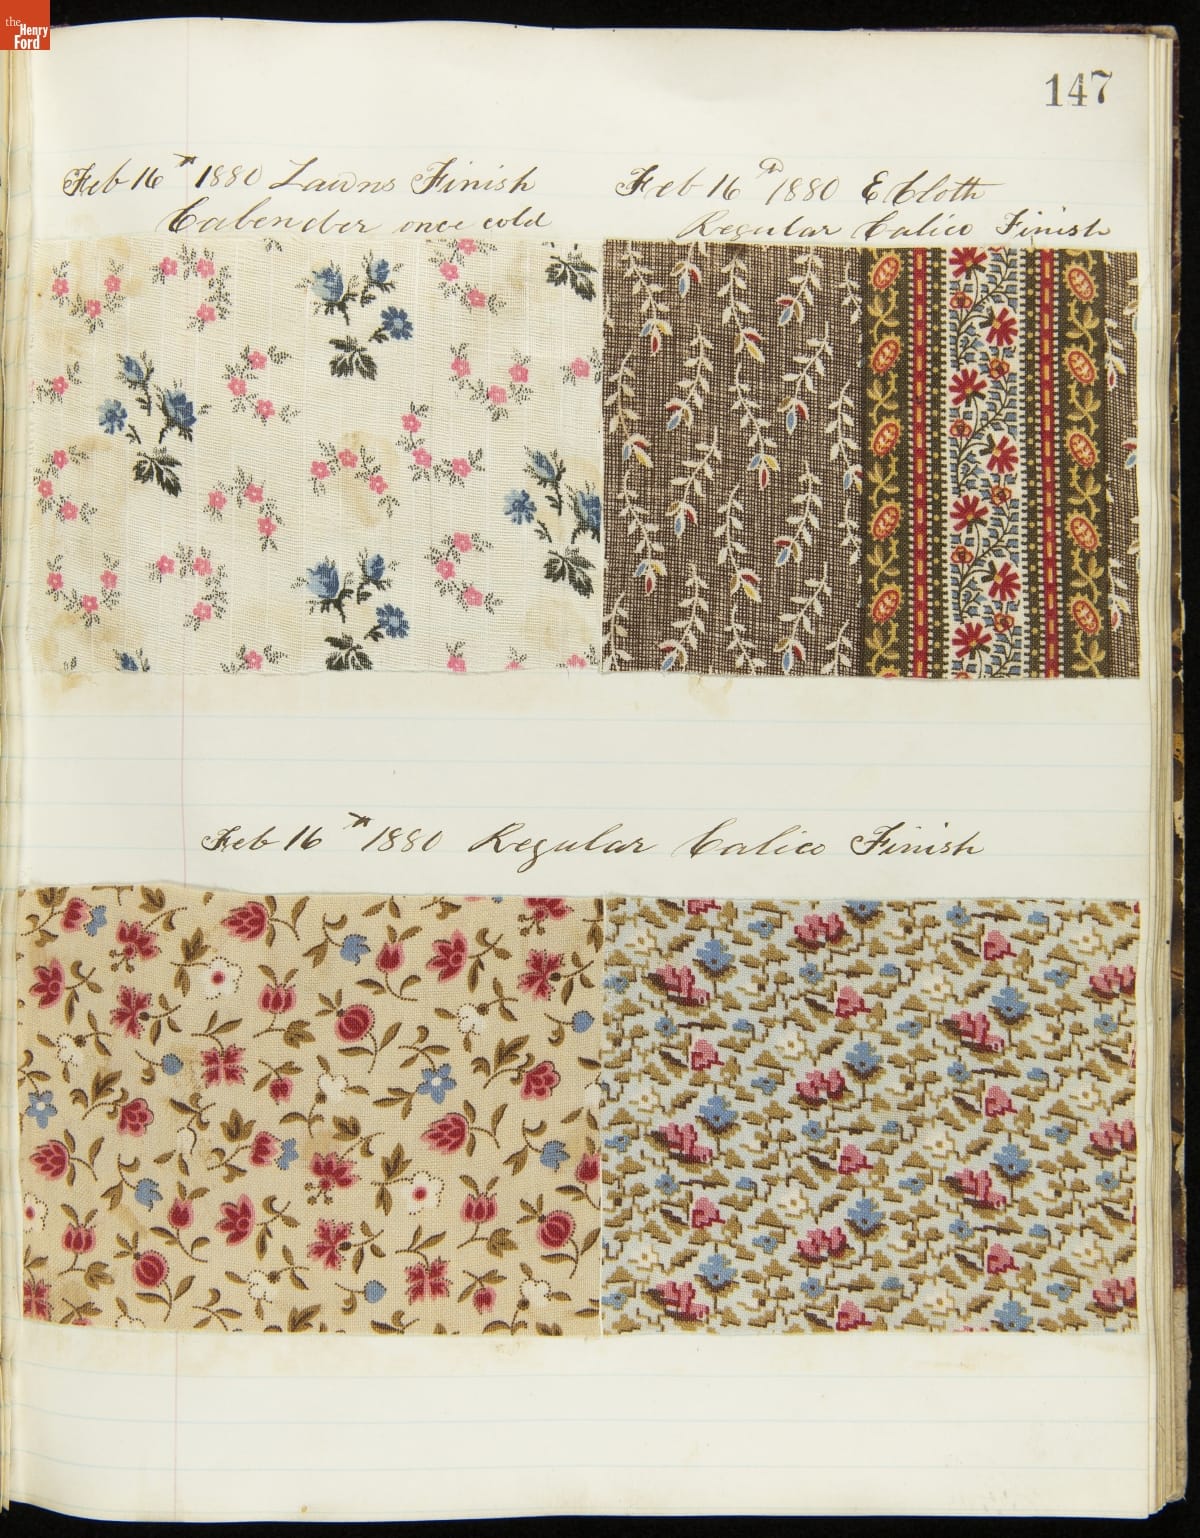 the
Henry
Ford
147
Feb 16th 1880 Lawns Finish
Calender once cold
Feb 16th 1880 E Cloth
Regular Calico Finish
Feb 16th 1880 Regular Calico Finish